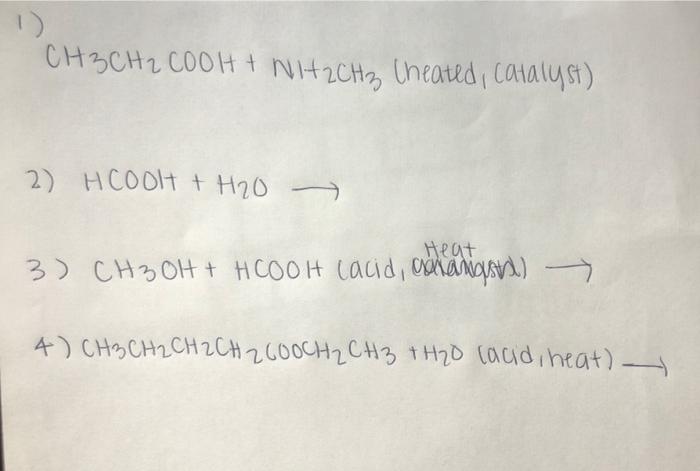 1)
CH3CH2COOH + NH2CH3 (heated, catalyst)
2) HCOOH + H2O →
Heat
3) CH3OH + HCOOH (acid, ) →
4) CH3CH2CH2CH2COOCH2CH3 + H2O (acid, heat) →